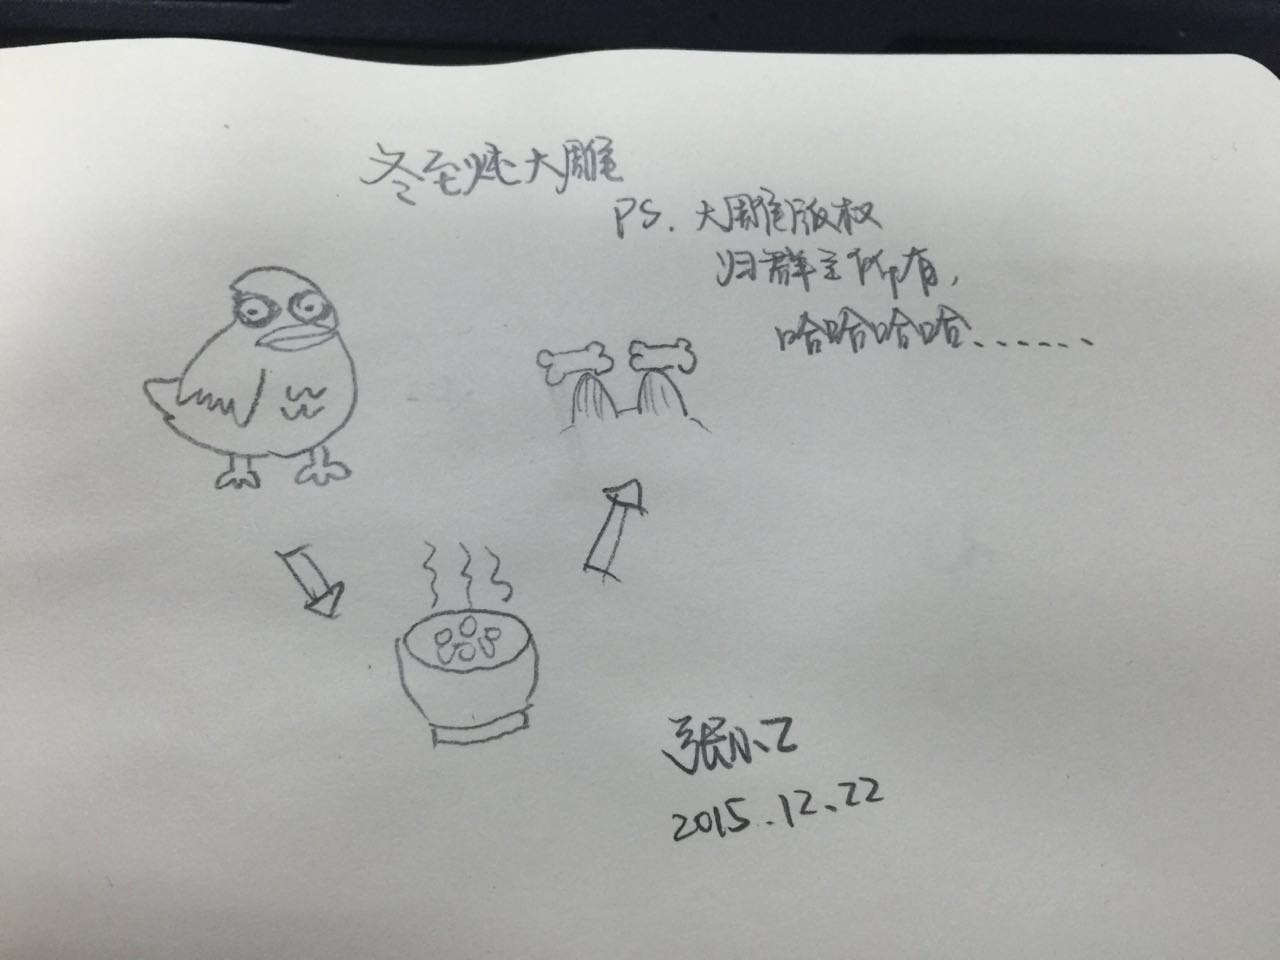 冬至炖大雕
PS. 大雕版权
归群主所有,
哈哈哈哈......
张小乙
2015.12.22